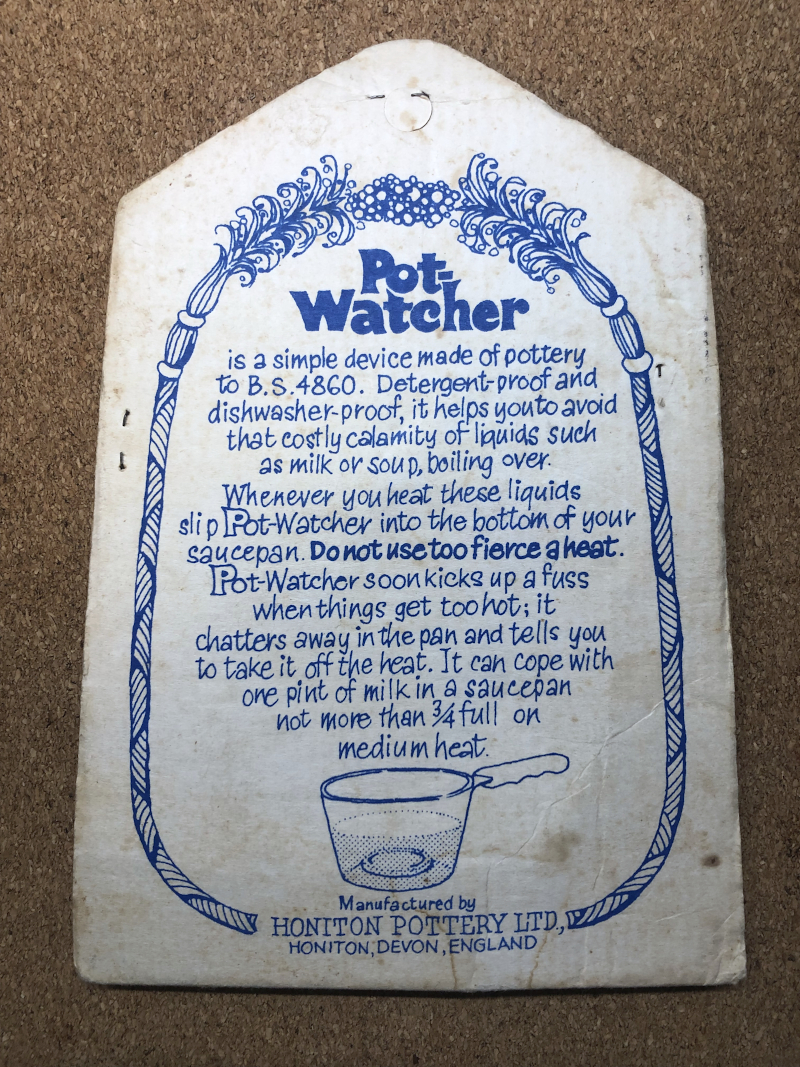 Pot-
Watcher
is a simple device made of pottery
to B.S.4860. Detergent-proof and
dishwasher-proof, it helps you to avoid
that costly calamity of liquids such
as milk or soup, boiling over.
Whenever you heat these liquids
slip Pot-Watcher into the bottom of your
saucepan. Do not use too fierce a heat.
Pot-Watcher soon kicks up a fuss
when things get too hot; it
chatters away in the pan and tells you
to take it off the heat. It can cope with
one pint of milk in a saucepan
not more than ¾ full on
medium heat.
Manufactured by
HONITON POTTERY LTD.,
HONITON, DEVON, ENGLAND